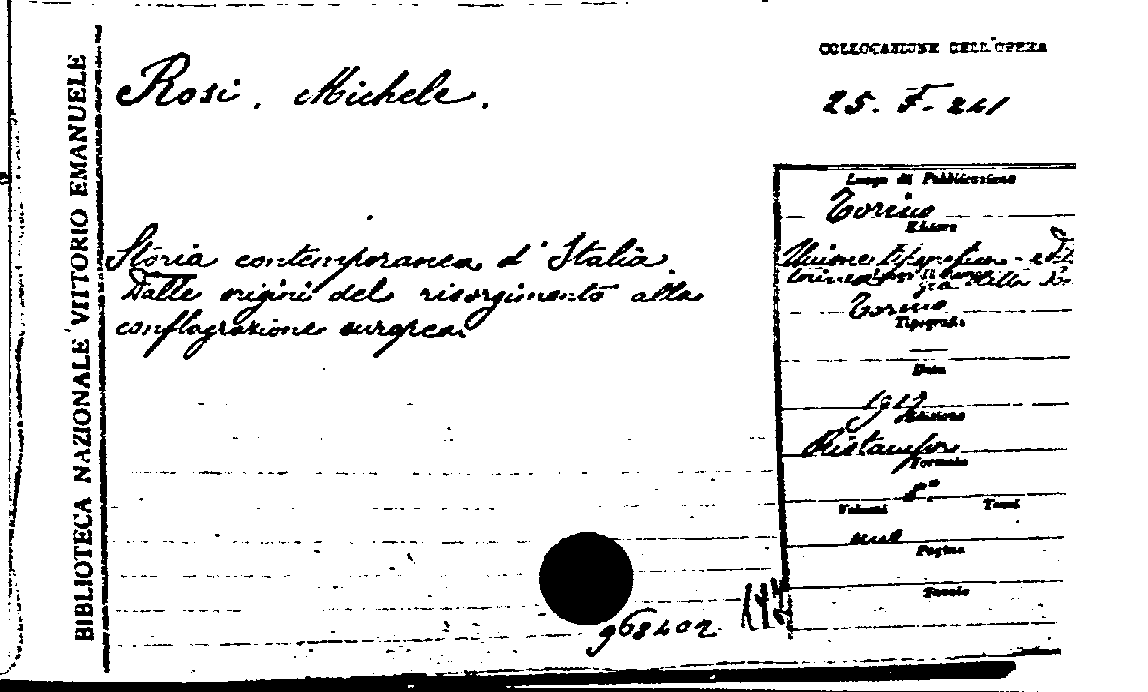 BIBLIOTECA NAZIONALE VITTORIO EMANUELE
COLLOCAZIONE DELL'OPERA
Rosi, Michele.
25. F. 241
Storia contemporanea d'Italia.
Dalle origini del risorgimento alla
conflagrazione europea
Luogo di Pubblicazione
Torino
Editore
Unione tipografico - edit
Torino
Tipografia
Data
Edizione
Ristampa
Formato
8°
Volumi Tomi
uno
Pagine
Tavole
968402